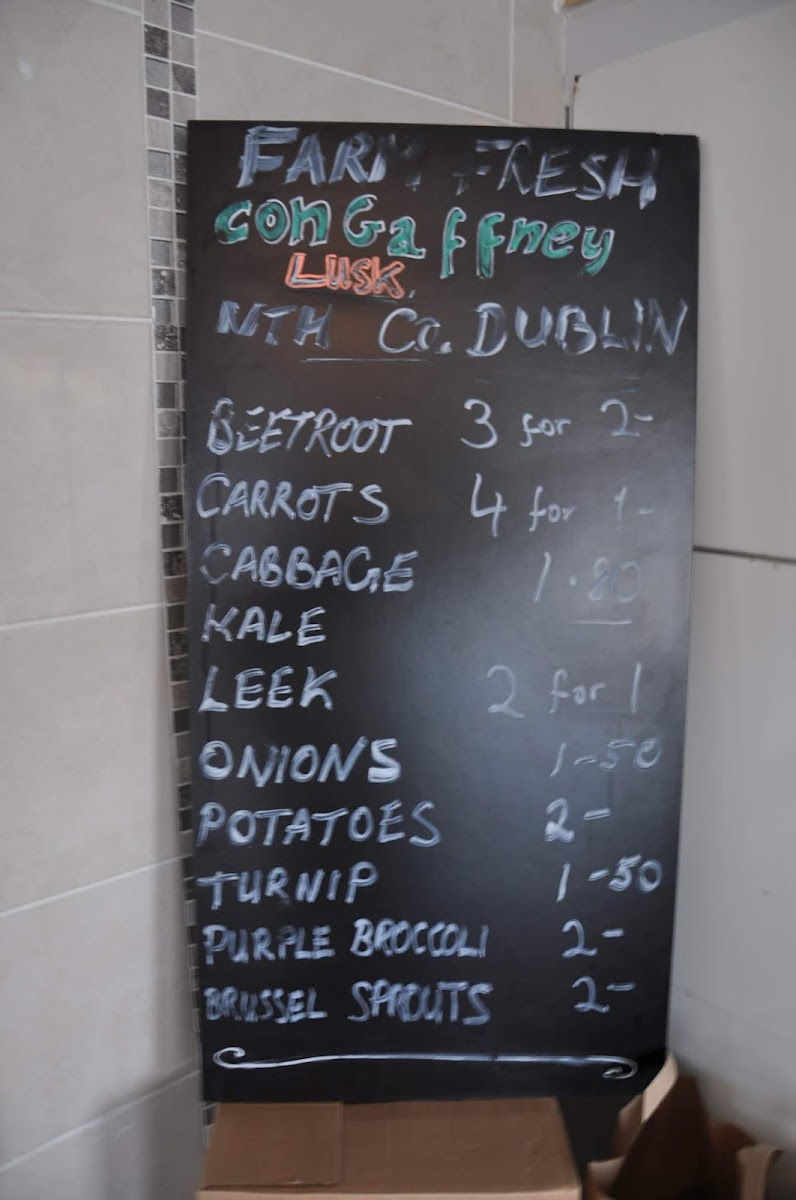 FARM FRESH
Con Gaffney
LUSK
NTH Co. DUBLIN
BEETROOT 3 for 2-
CARROTS 4 for 1-
CABBAGE 1.80
KALE
LEEK 2 for 1
ONIONS 1-50
POTATOES 2-
TURNIP 1-50
PURPLE BROCCOLI 2-
BRUSSEL SPROUTS 2-